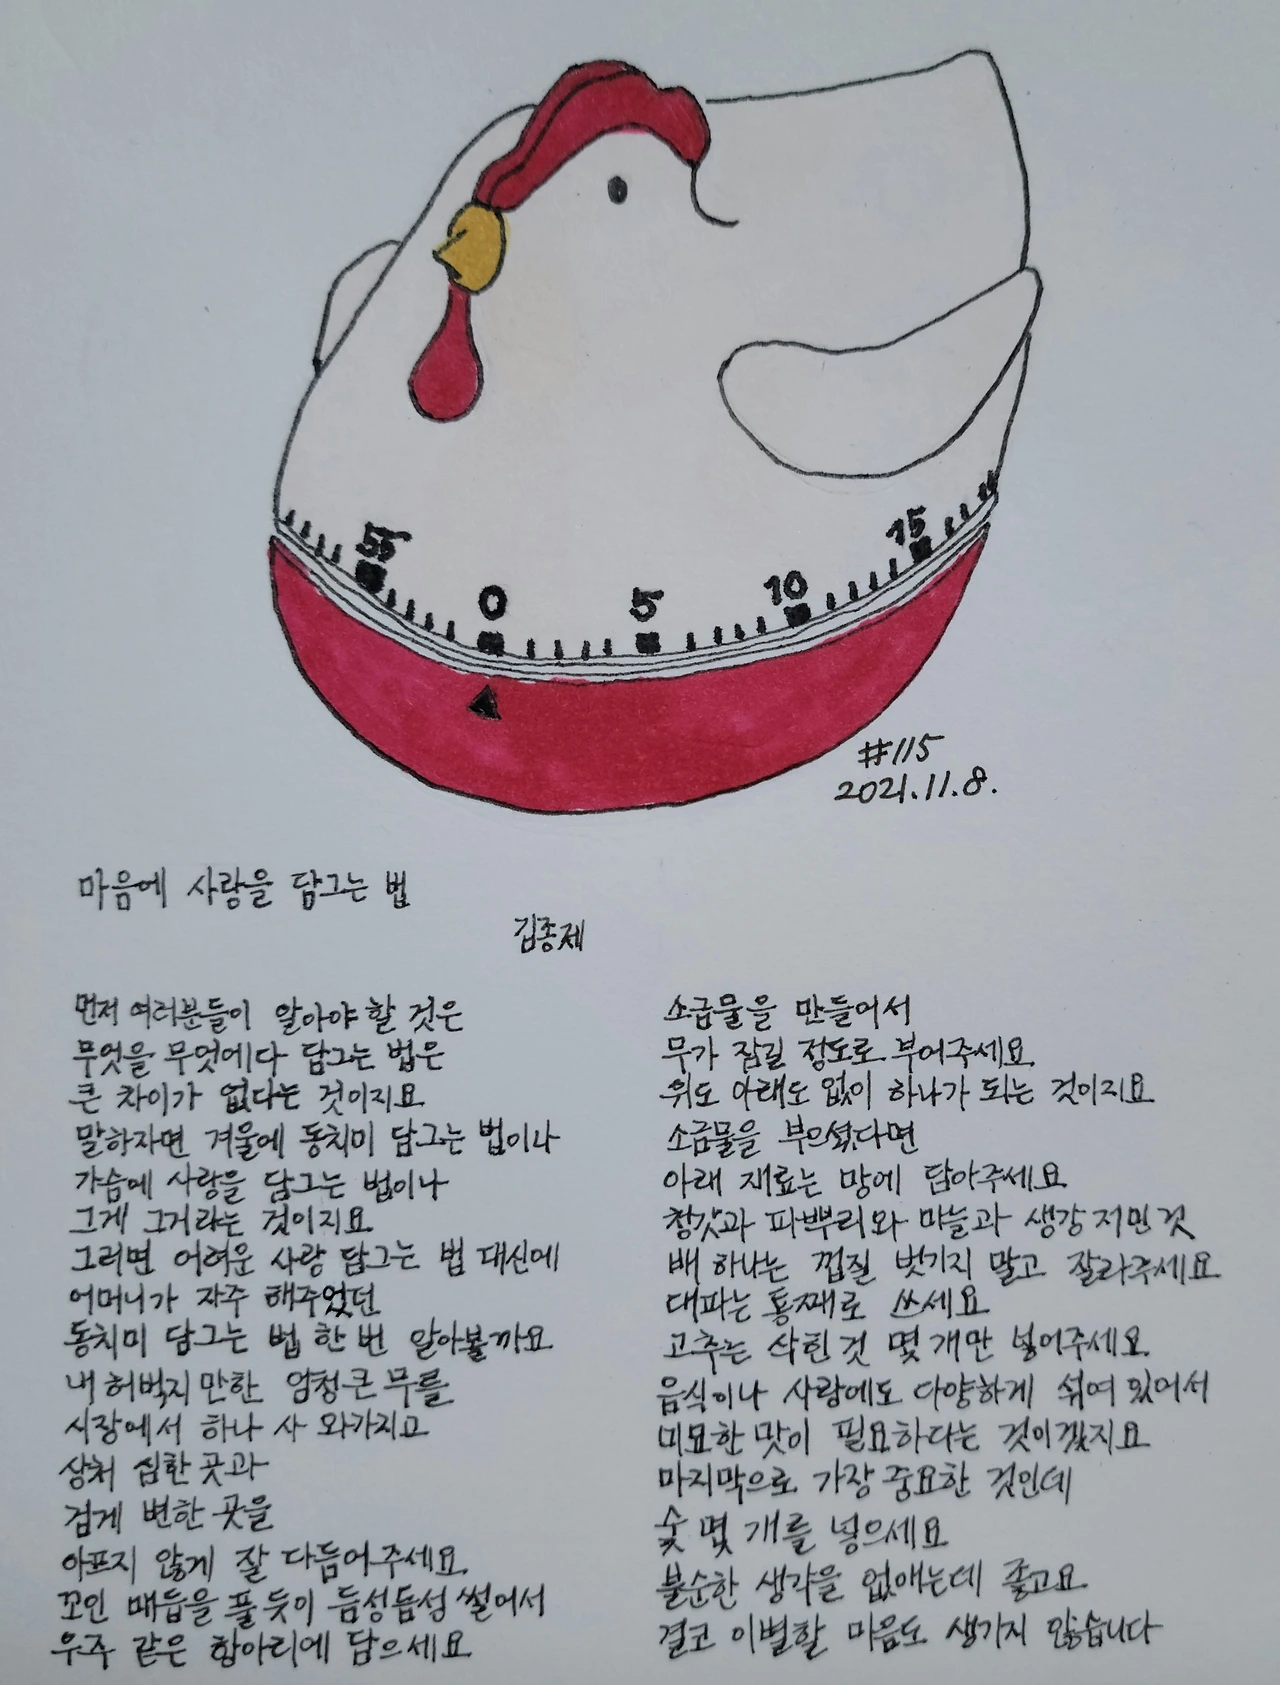 55
0
5
10
15
#115
2021.11.8.
마음에 사랑을 담그는 법
김종제
먼저 여러분들이 알아야 할 것은
무엇을 무엇에다 담그는 법은
큰 차이가 없다는 것이지요
말하자면 겨울에 동치미 담그는 법이나
가슴에 사랑을 담그는 법이나
그게 그거라는 것이지요
그러면 어려운 사랑 담그는 법 대신에
어머니가 자주 해주었던
동치미 담그는 법 한 번 알아볼까요
내 허벅지만한 엄청 큰 무를
시장에서 하나 사 와가지고
상처 심한 곳과
검게 변한 곳을
아프지 않게 잘 다듬어주세요
꼬인 매듭을 풀듯이 듬성듬성 썰어서
우주 같은 항아리에 담으세요
소금물을 만들어서
무가 잠길 정도로 부어주세요
위도 아래도 없이 하나가 되는 것이지요
소금물을 부으셨다면
아래 재료는 망에 담아주세요
청갓과 파뿌리와 마늘과 생강 저민 것
배 하나는 껍질 벗기지 말고 잘라주세요
대파는 통째로 쓰세요
고추는 삭힌 것 몇 개만 넣어주세요
음식이나 사랑에도 다양하게 섞여 있어서
미묘한 맛이 필요하다는 것이겠지요
마지막으로 가장 중요한 것인데
숯 몇 개를 넣으세요
불순한 생각을 없애는데 좋고요
결코 이별할 마음도 생기지 않습니다